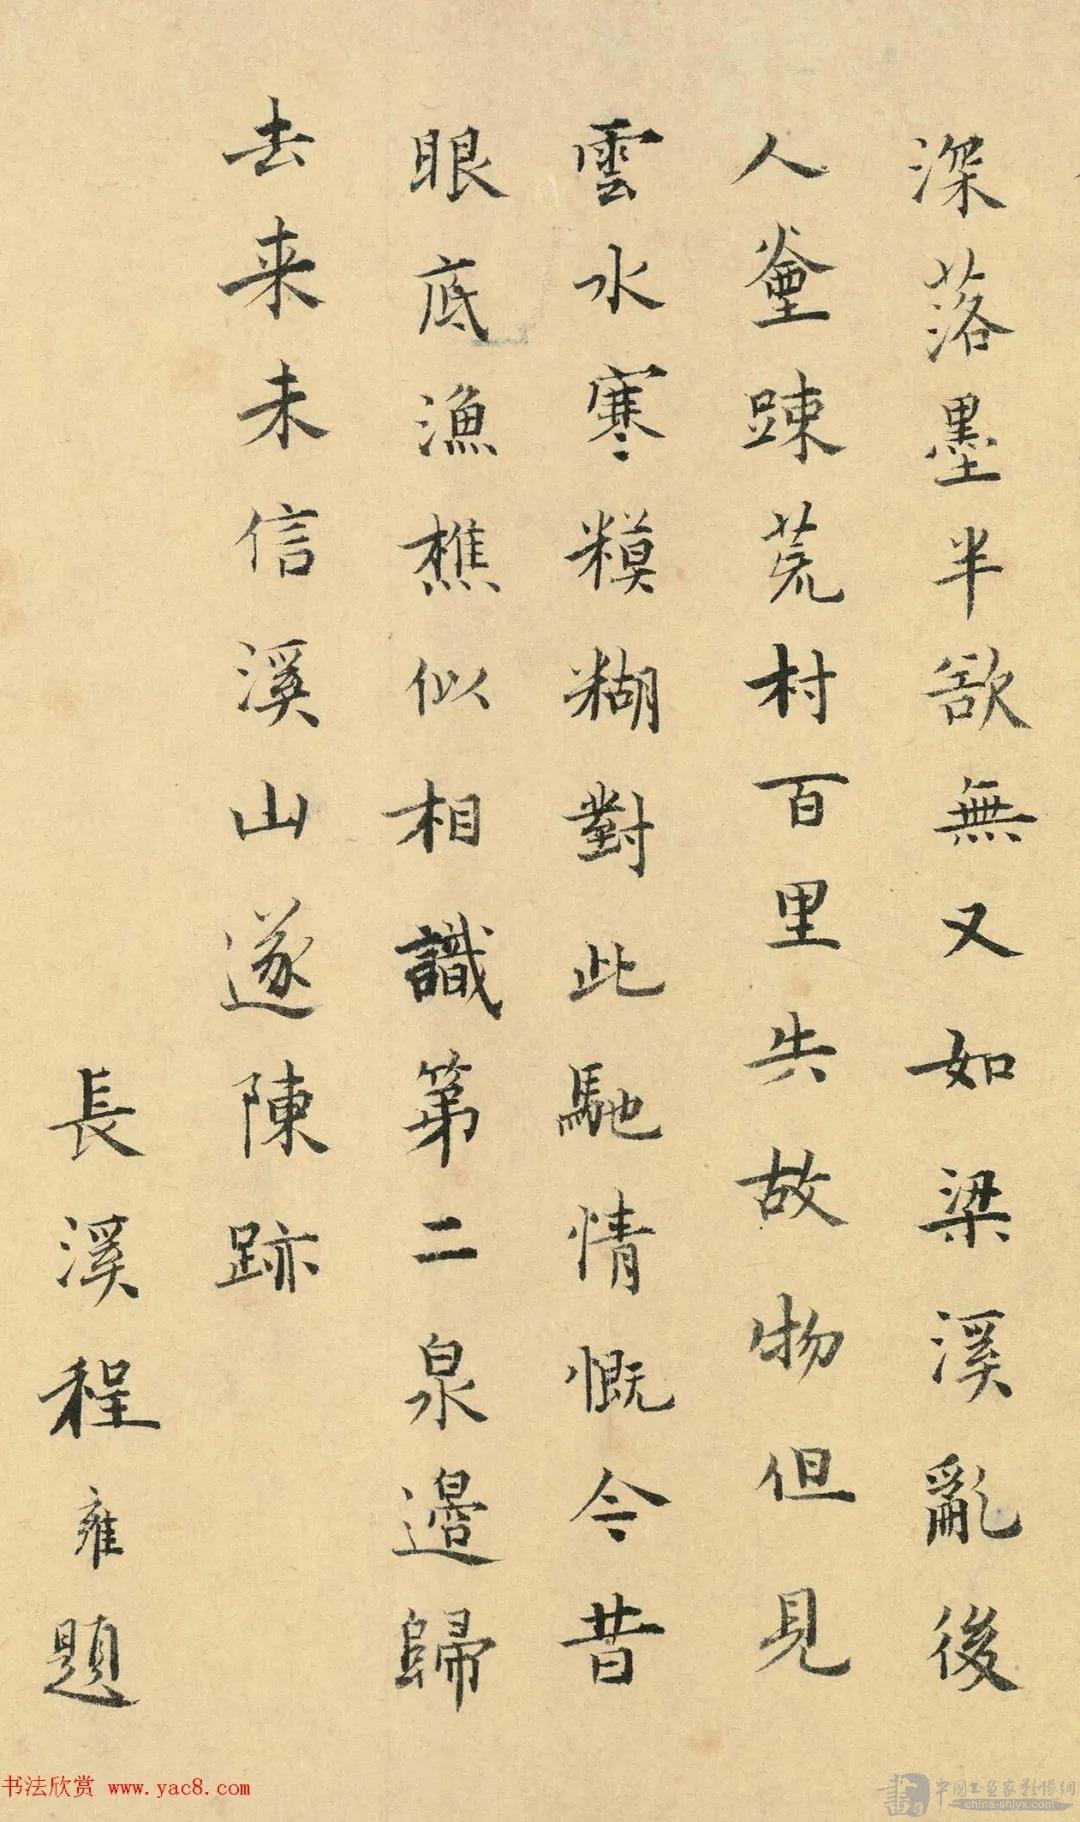 深落墨半欲無又如梁溪亂後
人煙踈荒村百里失故物但見
雲水寒糢糊對此馳情慨今昔
眼底漁樵似相識第二泉邊歸
去来未信溪山遂陳跡
長溪程雍題
书法欣赏 www.yac8.com
中国书画家影像網
china-shjyx.com